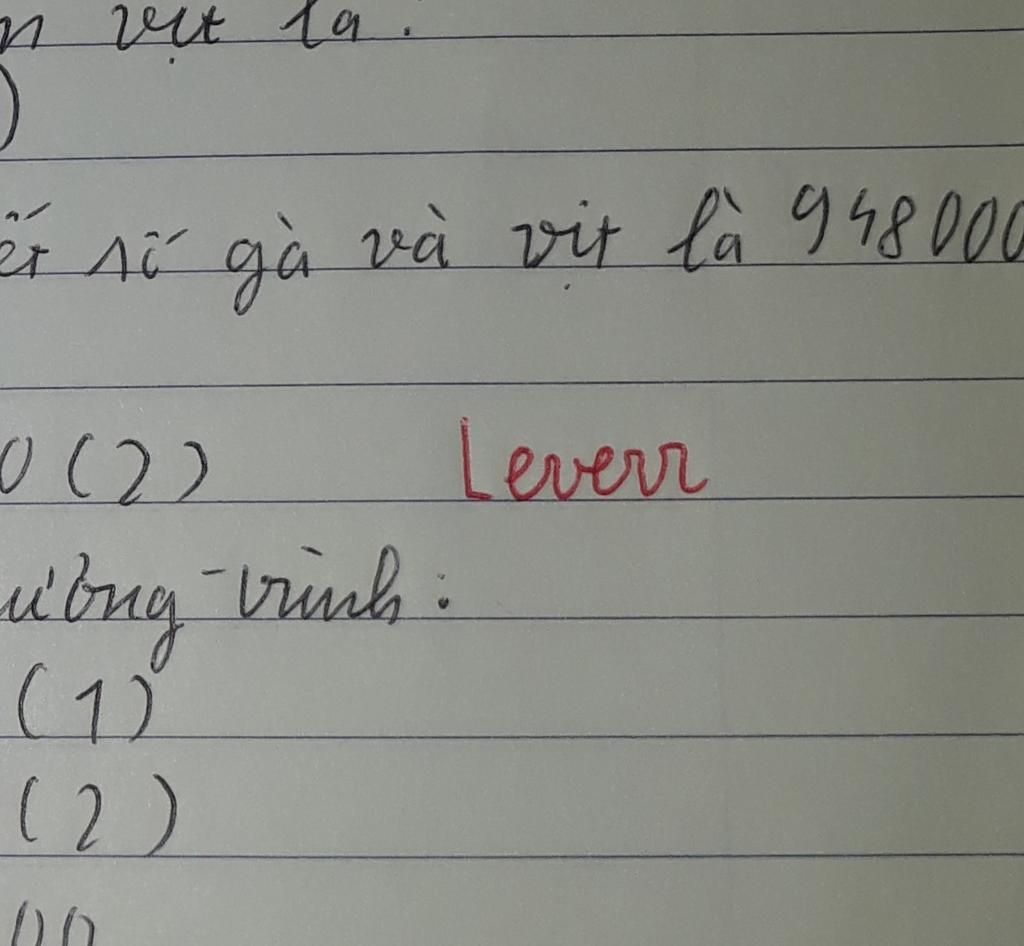 n vịt là:
)
ết số gà và vịt là 948000
0 (2) Leverr
ường trình:
(1)
(2)
00